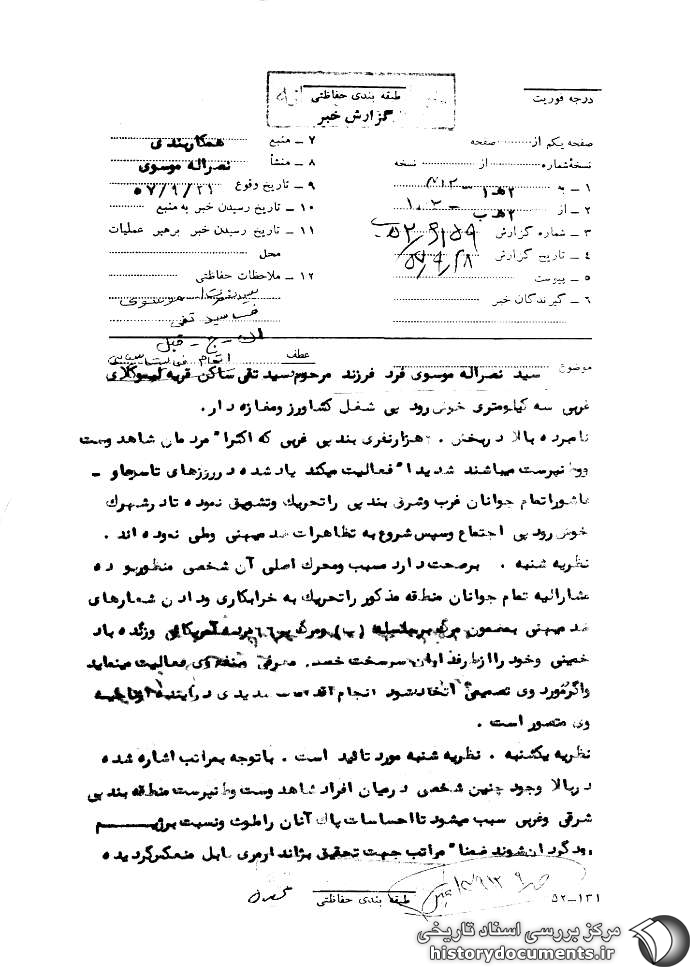 درجه فوریت
طبقه بندی حفاظتی
گزارش خبر
صفحه یکم از صفحه
نسخهٔ شماره از نسخه
۱ ـ به
۲ ـ از
۳ ـ شماره گزارش
۴ ـ تاریخ گزارش
۵ ـ پیوست
۶ ـ گیرندگان خبر
۷ ـ منبع همکاربندپی
۸ ـ منشأ نصراله موسوی
۹ ـ تاریخ وقوع ۵۷/۹/۲۱
۱۰ ـ تاریخ رسیدن خبر به منبع
۱۱ ـ تاریخ رسیدن خبر برهبر عملیات
محل
۱۲ ـ ملاحظات حفاظتی
عطف
موضوع سید نصراله موسوی فرد فرزند مرحوم سید تقی ساکن قریه
غربی سه کیلومتری خوش رود پی شغل کشاورز ومغازه دار.
نامبرده بالا دربخش هزارنفری بندپی غربی که اکثرا" مردمان شاهدوست
ووطنپرست میباشند شدیدا" فعالیت میکند یادشده درروزهای تاسوعاو ـ
عاشوراتمام جوانان غرب وشرق بندپی راتحریک وتشویق نموده تادرشهرک
خوش رودپی اجتماع وسپس شروع به تظاهرات ضدمیهنی وطی نموده اند.
نظریه شنبه . برصحت دارد مسبب ومحرک اصلی آن شخصی منظوربوده
مشارالیه تمام جوانان منطقه مذکور راتحریک به خرابکاری ودادن شعارهای
ضدمیهنی بمضمون مرگ بر ومرگ بر آمریکائی وزنده باد
خمینی وخودراازطرفداران سرسخت معرفی فعالیت مینماید
واگرمورد وی تصمیمی اتخاذنشود انجام شدیدی درآینده
وی متصور است .
نظریه یکشنبه . نظریه شنبه مورد تائید است . باتوجه بمراتب اشاره شده
دربالا وجود چنین شخصی درمیان افراد شاهدوست وطنپرست منطقه بندپی
شرقی وغربی سبب میشود تااحساسات پاک آنان راملوث ونسبت برژیم
گردان شوند ضمنا" مراتب جهت تحقیق بژاندارمری بابل منعکس گردیده
طبقه بندی حفاظتی
۵۲-۱۳۱
مرکز بررسی اسناد تاریخی
historydocuments.ir